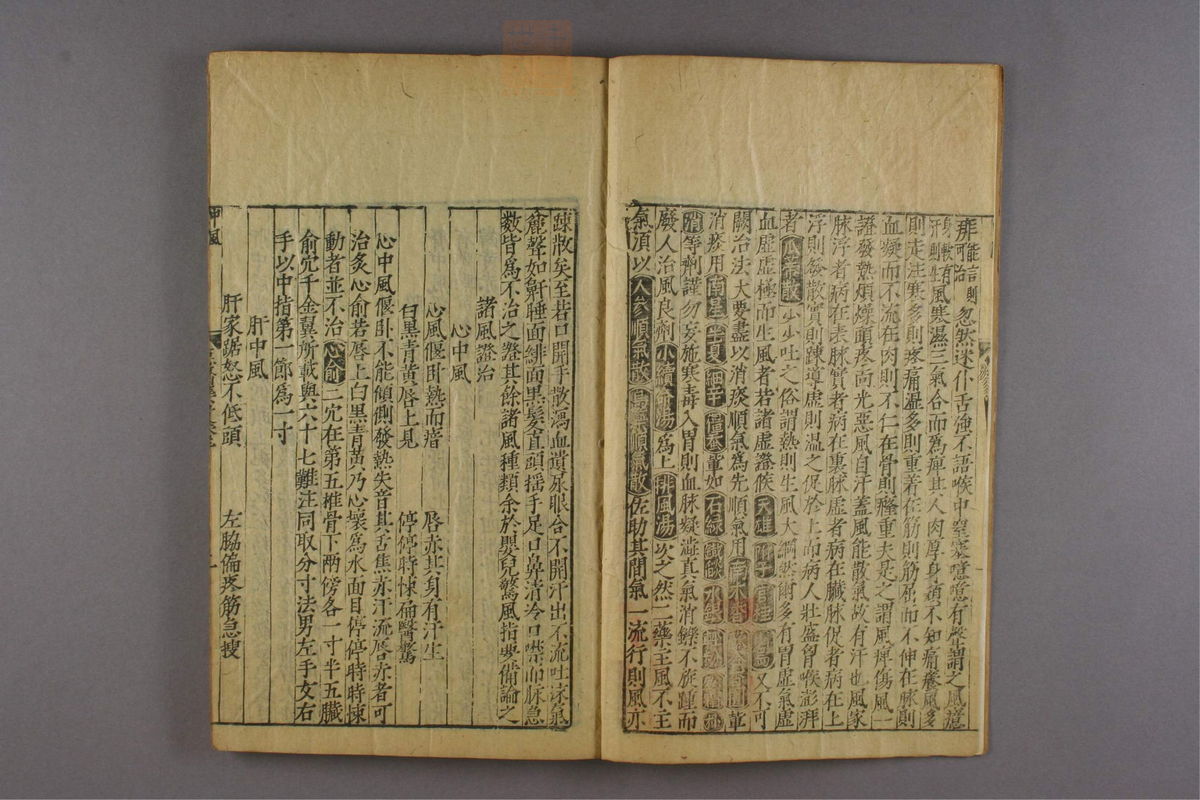 痱能言則可治
身軟有汗則生
忽然迷仆舌強不語喉中窒塞噫噫有聲謂之風懿
風寒濕三氣合而爲痺其人肉厚身頑不知痛癢風多
則走注寒多則疼痛濕多則重着在筋則筋屈而不伸在脉則
血凝而不流在肉則不仁在骨則癃重夫是之謂風痺傷風一
證發熱煩燥頭疼面光惡風自汗蓋風能散氣故有汗也風家
脉浮者病在表脉實者病在裏脉虛者病在臟脉促者病在上
浮則發散實則踈導虛則温之促於上而病人壯盛胷喉澎湃
者瓜蒂散少少吐之俗謂熱則生風大綱然爾多有胃虛氣虛
血虛虛極而生風者若諸虛證候天雄附子官桂川烏又不可
闕治法大要盡以消痰順氣爲先順氣用南木香
消痰用南星半夏細辛僵蠶輩如石緑鐵粉水銀
消等劑謹勿妄施寒毒入胃則血脉凝澁真氣消鑠不旋踵而
廢人治風良劑小續命湯爲上排風湯次之然二藥主風不主
氣須以人參順氣散烏藥順氣散佐助其間氣一流行則風亦
踈散矣至若口開手散瀉血遺尿眼合不開汗出不流吐沫氣
麄聲如鼾睡面緋面黑髮直頭摇手足口鼻清冷口噤而脉急
數皆爲不治之證其餘諸風種類余於嬰兒驚風指要備論之
諸風證治
心中風
心風偃卧熱而瘖 唇赤其身有汗生
白黑青黄唇上見 停停時悚痛醫驚
心中風偃卧不能傾側發熱失音其舌焦赤汗流唇赤者可
治灸心俞若唇上白黑青黄乃心壞爲水面目停停時時悚
動者並不治心俞二穴在第五椎骨下兩傍各一寸半五臟
俞穴千金翼所載與六十七難注同取分寸法男左手女右
手以中指第一節爲一寸
肝中風
肝家踞怒不低頭 左脇偏疼筋急搜
中風